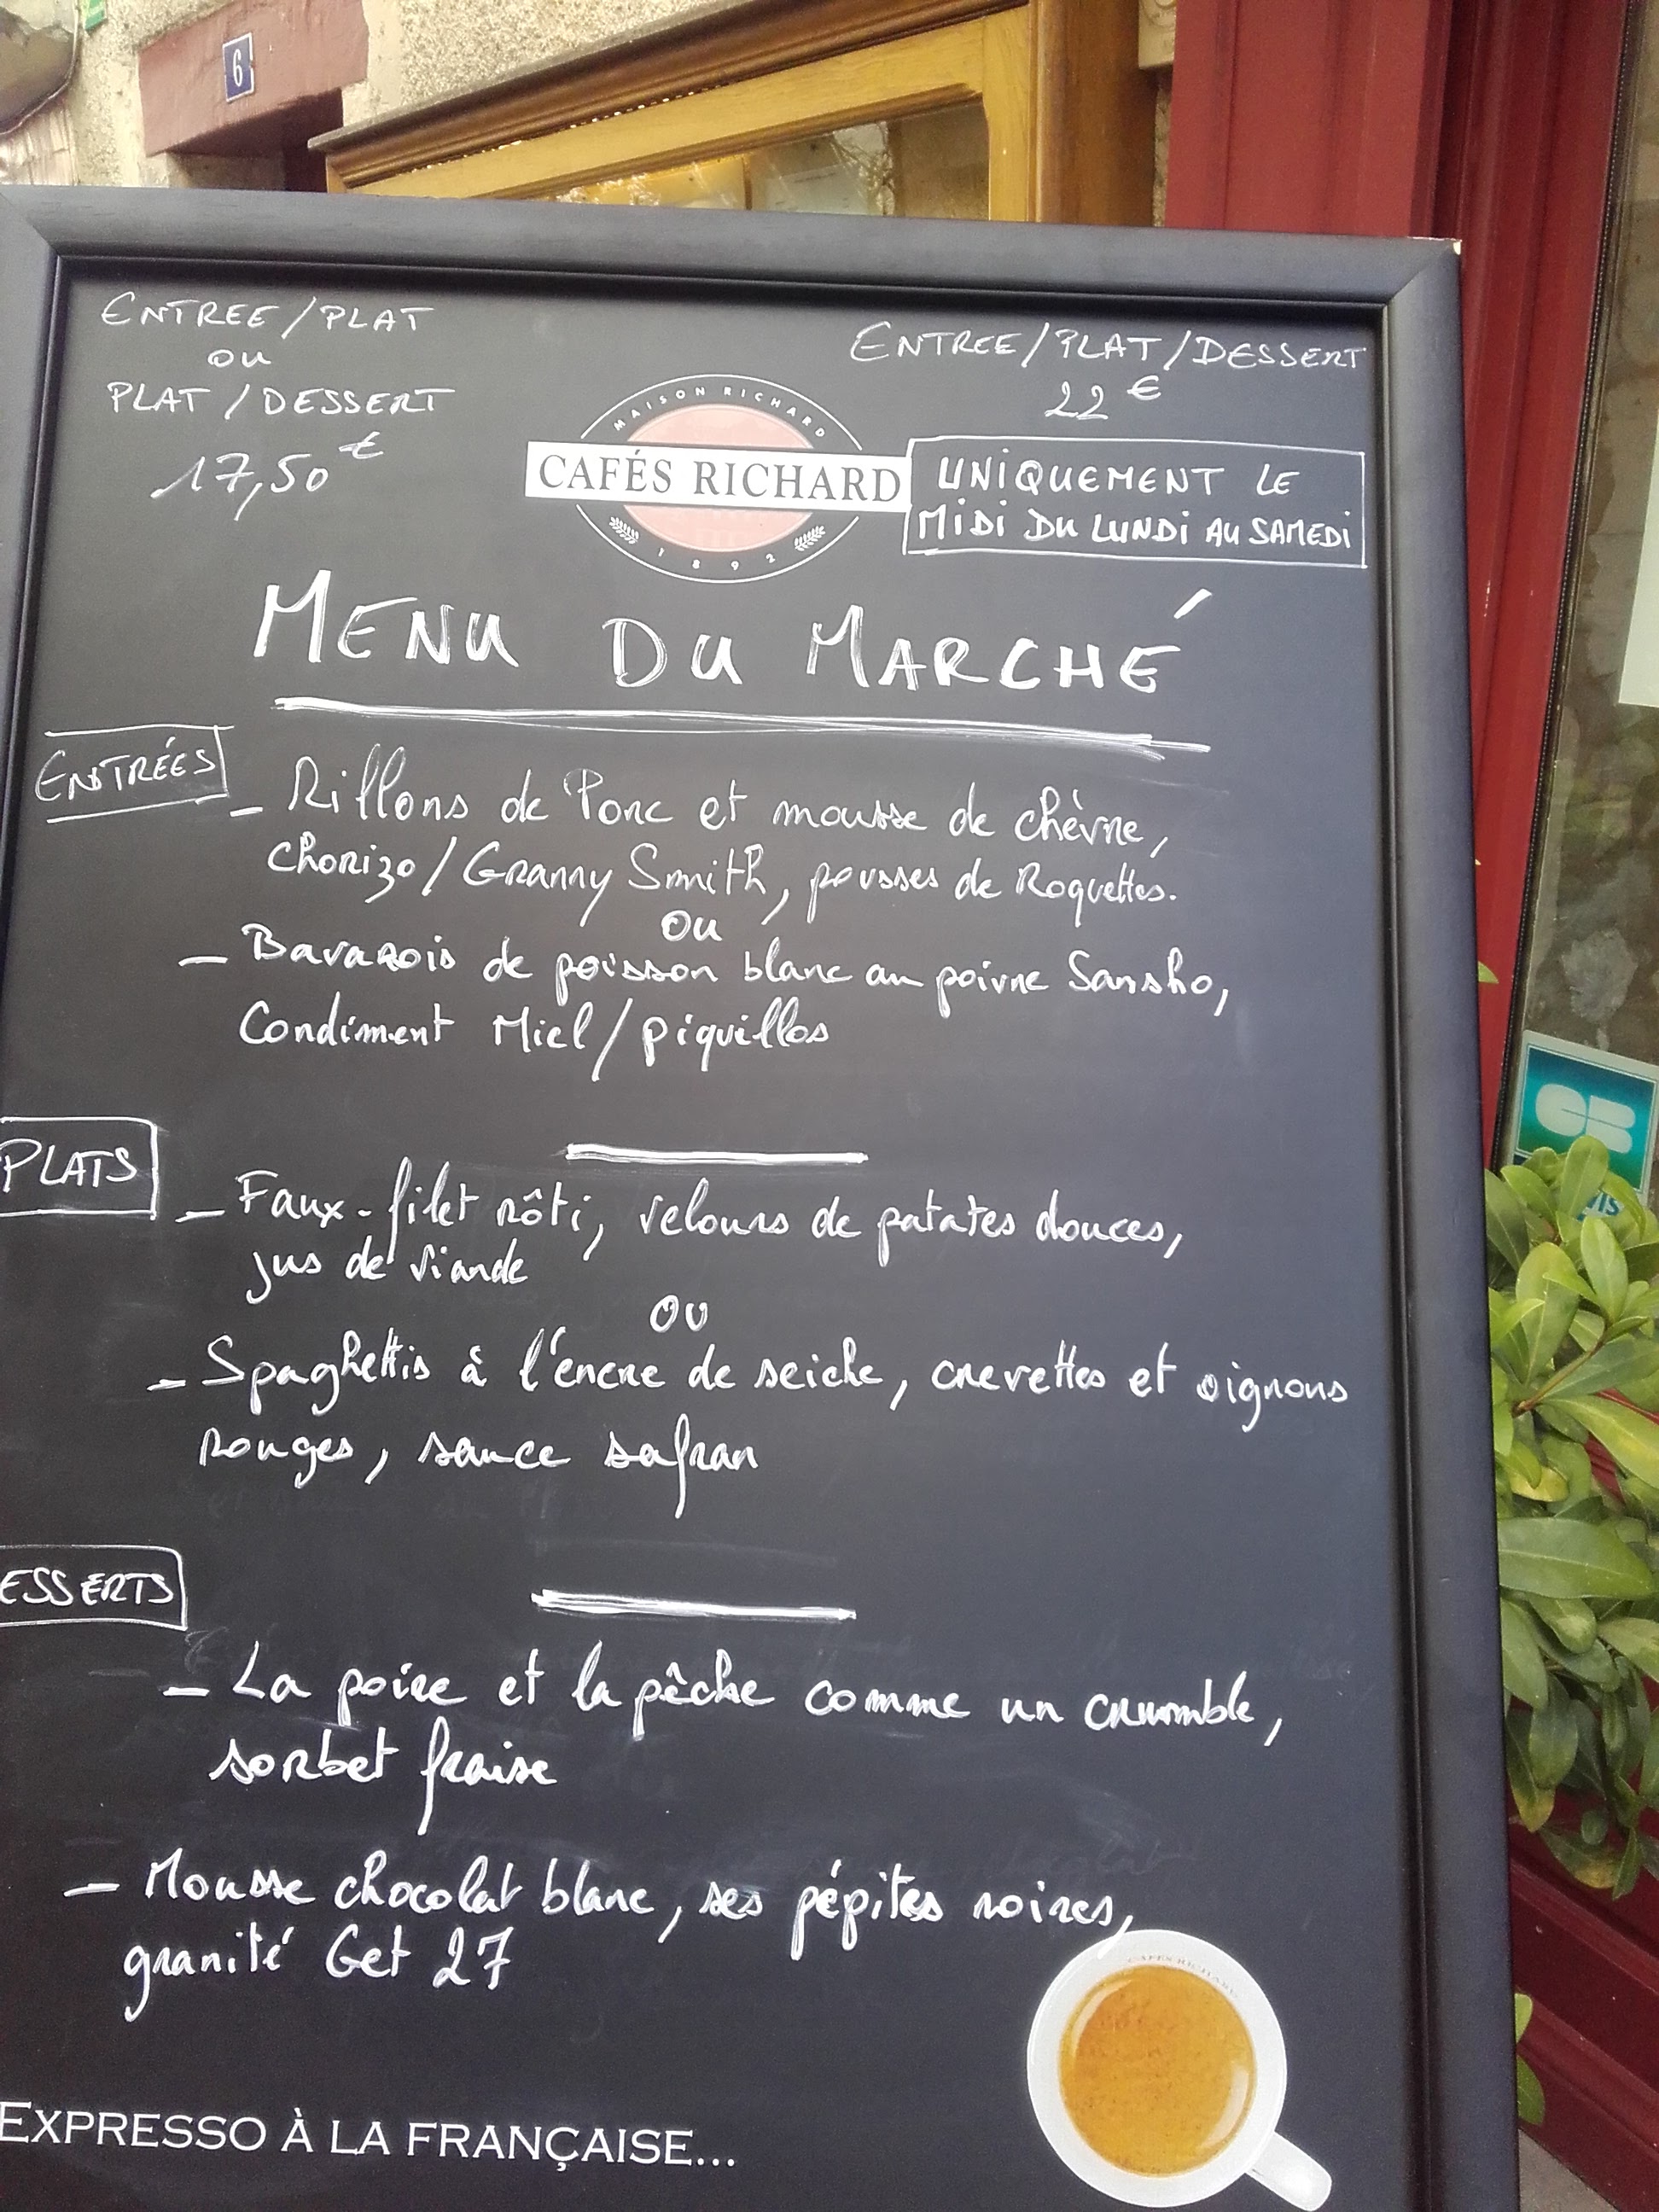 6
ENTREE/PLAT
OU
PLAT/DESSERT
17,50€
ENTREE/PLAT/DESSERT
22€
MAISON RICHARD
CAFÉS RICHARD
1892
UNIQUEMENT LE
MIDI DU LUNDI AU SAMEDI
MENU DU MARCHÉ
ENTRÉES
- Rillons de Porc et mousse de chèvre,
chorizo/Granny Smith, pousses de Roquettes.
OU
- Bavarois de poisson blanc au poivre Sansho,
Condiment Miel/piquillos
PLATS
- Faux-filet rôti, velours de patates douces,
jus de viande
OU
- Spaghettis à l'encre de seiche, crevettes et oignons
rouges, sauce safran
ESSERTS
- La poire et la pêche comme un crumble,
sorbet fraise
- Mousse chocolat blanc, ses pépites noires,
granité Get 27
CAFÉS RICHARD
EXPRESSO À LA FRANÇAISE...
CB